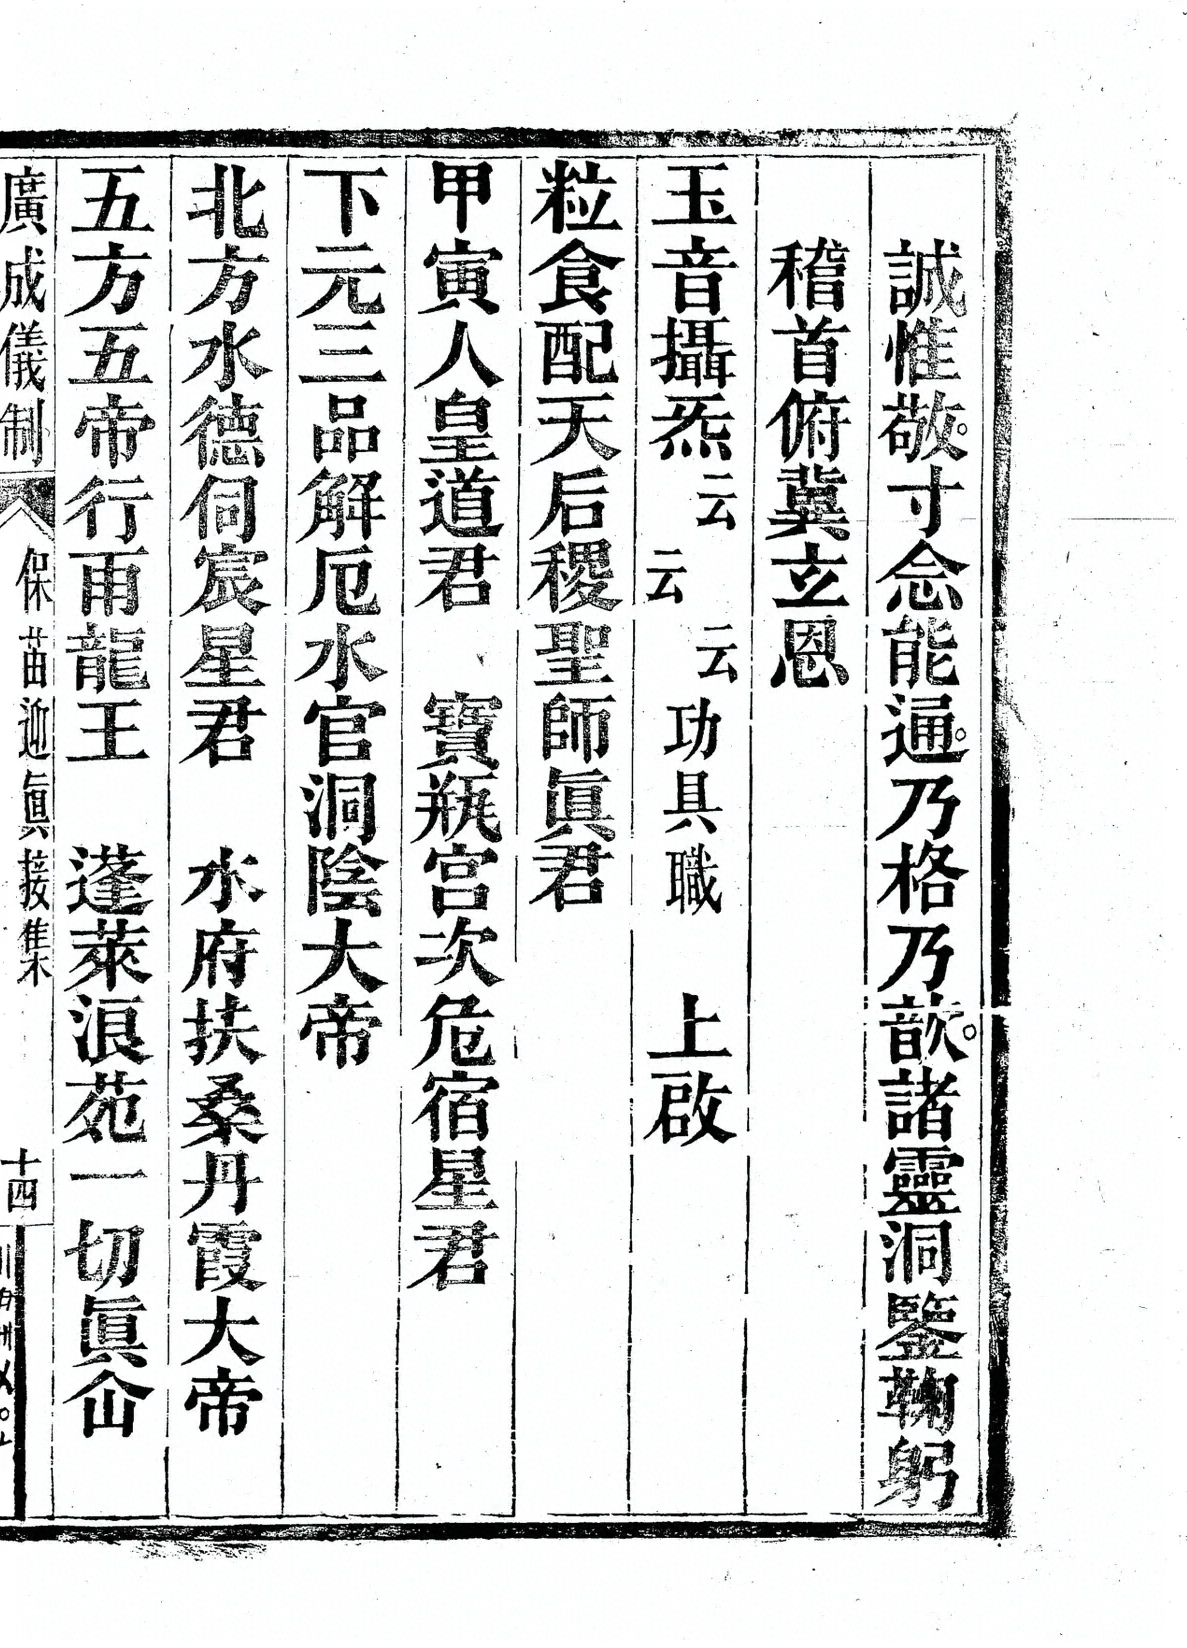 誠惟敬。寸念能通。乃格乃歆。諸靈洞鑒鞠躬
稽首俯冀玄恩
玉音攝炁云云云功具職 上啟
粒食配天后稷聖師眞君
甲寅人皇道君 寶瓶宮次危宿星君
下元三品解厄水官洞陰大帝
北方水德伺宸星君 水府扶桑丹霞大帝
五方五帝行雨龍王 蓬萊浪苑一切眞仚
廣成儀制 保苗迎眞接集 十四